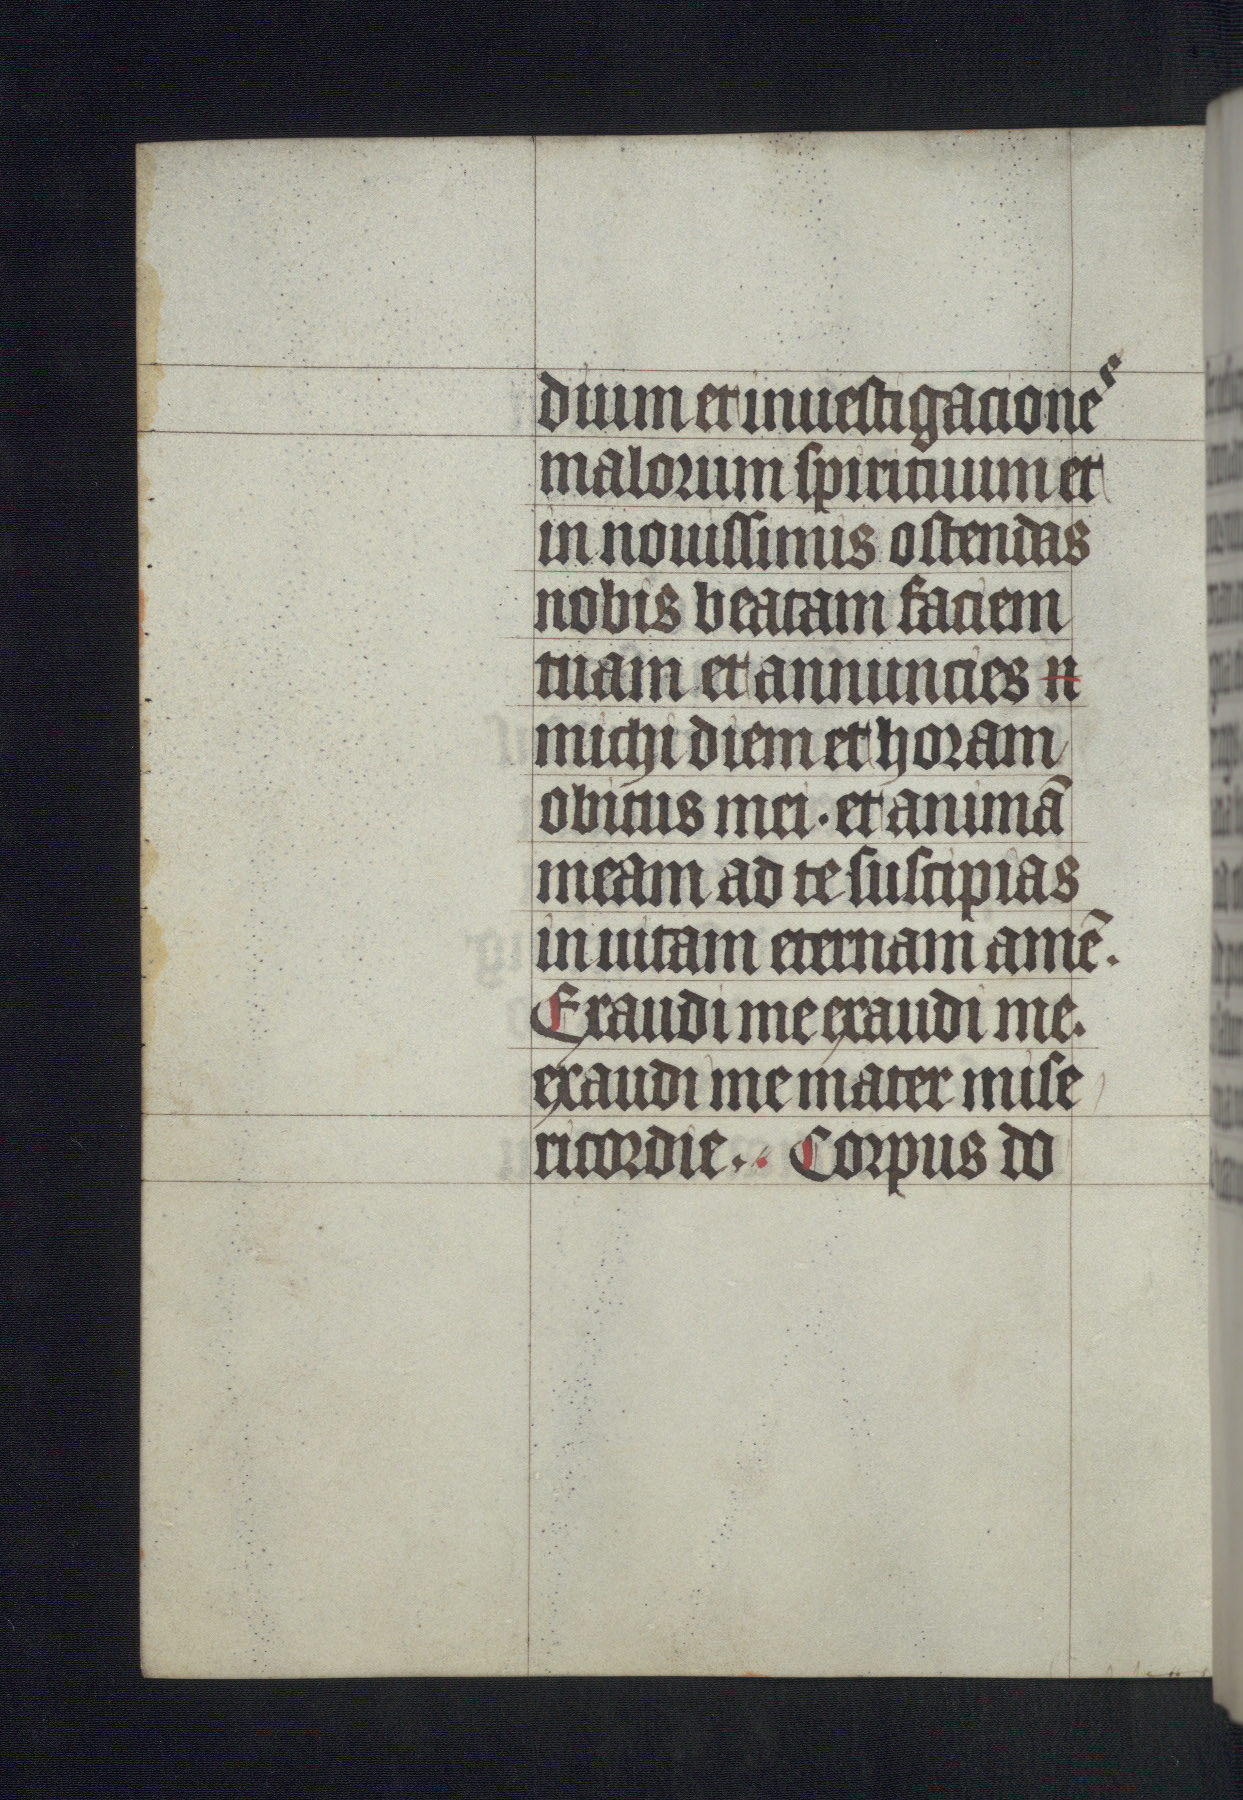 dium et inuestigaciones
malorum spirituum et
in nouissimis ostendas
nobis beatam faciem
tuam et annuncies n
michi diem et horam
obitus mei · et animā
meam ad te suscipias
in uitam eternam amē.
Exaudi me exaudi me.
exaudi me mater mise
ricordie. . Corpus do